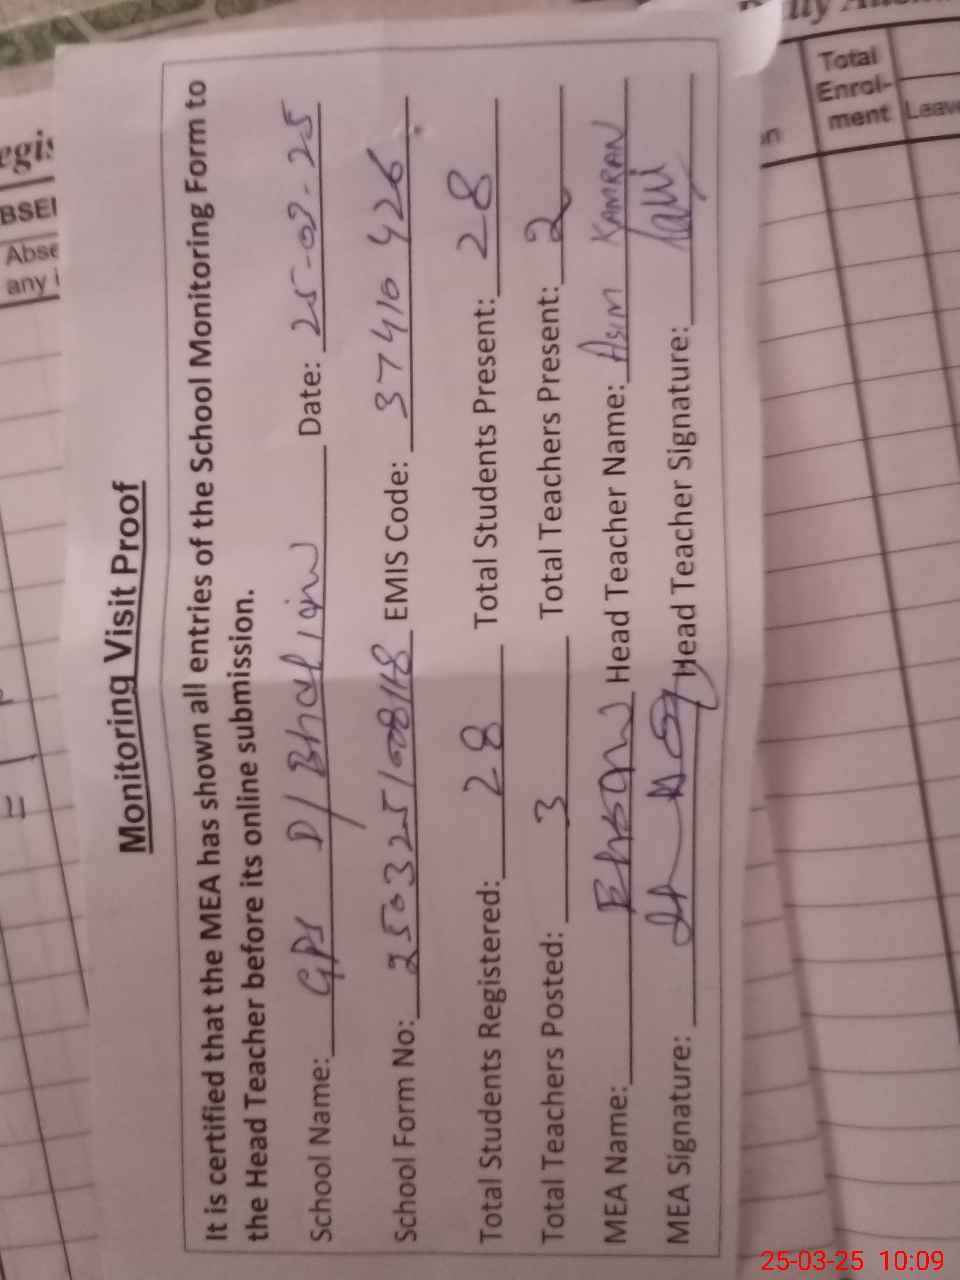 Monitoring Visit Proof
It is certified that the MEA has shown all entries of the School Monitoring Form to
the Head Teacher before its online submission.
School Name: GPS D/ Bhatian Date: 25-03-25
School Form No: 2503251008118 EMIS Code: 37410426
Total Students Registered: 28 Total Students Present: 28
Total Teachers Posted: 3 Total Teachers Present: 2
MEA Name: Ehsan Head Teacher Name: ASIM KAMRAN
MEA Signature: Head Teacher Signature:
Total
Enrol-
ment
Leave
Abse
any
25-03-25 10:09